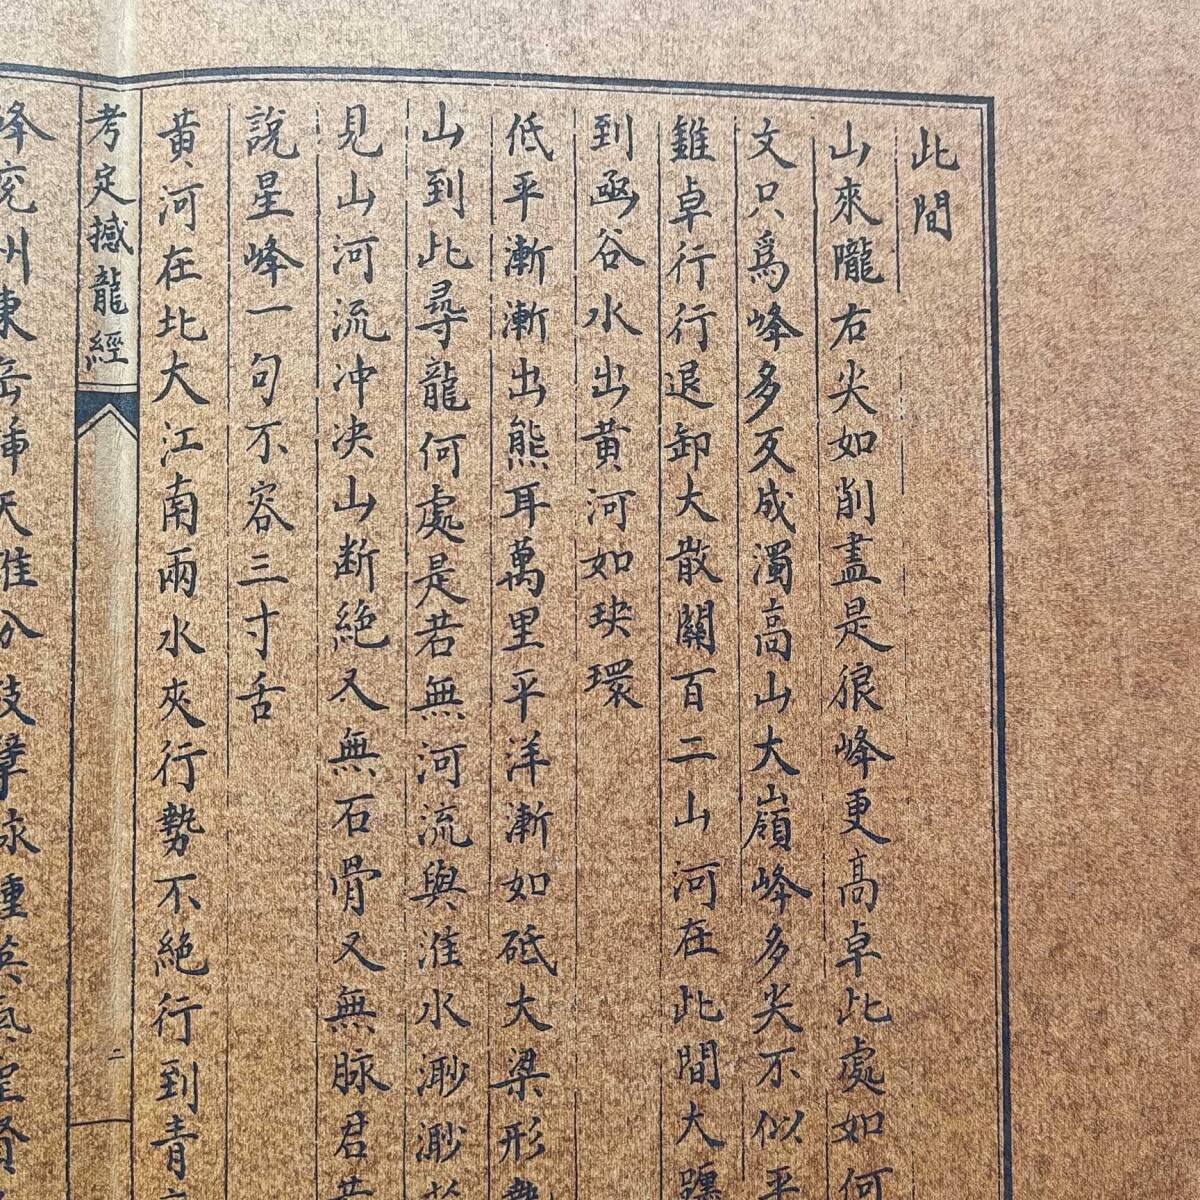 此間
山來隴右尖如削盡是狼峰更高卓此處如何
文只爲峰多反成濁高山大嶺峰多尖不似平
雖卓行行退卸大散關百二山河在此間大
到函谷水出黃河如玦環
低平漸漸出熊耳萬里平洋漸如砥大梁形勢
山到此尋龍何處是若無河流與淮水渺渺
見山河流冲决山断絶又無石骨又無脉君
說星峰一句不容三寸舌
黃河在北大江南兩水夾行勢不絶行到青
考定撼龍經
二
峰兗州東岳插天雄分枝擘脉鍾英氣聖賢